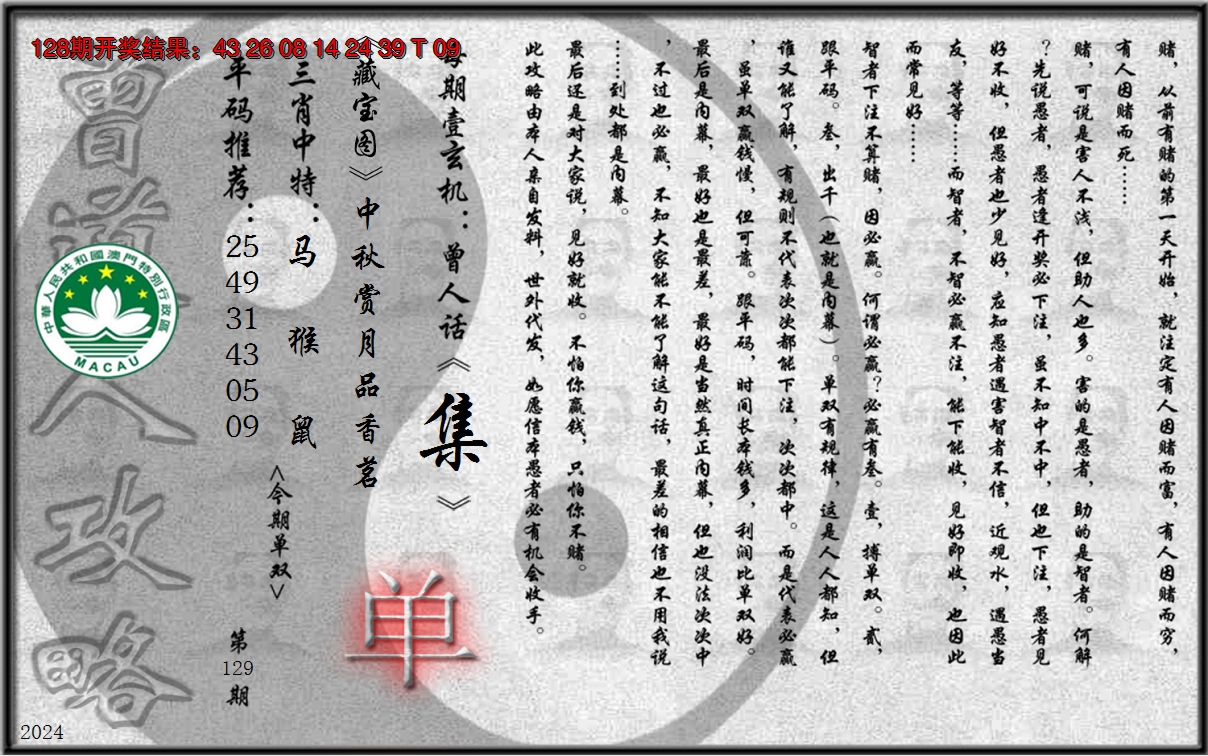 128期开奖结果：43 26 08 14 24 39 T 09
赌，从前有赌的第一天开始，就注定有人因赌而富，有人因赌而穷，
有人因赌而死……
赌，可说是害人不浅，但助人也多。害的是愚者，助的是智者。何解
？先说愚者，愚者逢开奖必下注，虽不知中不中，但也下注，愚者见
好不收，但愚者也少见好，应知愚者遇害智者不信，近观水，遇愚当
友，等等……而智者，不智必赢不注，能下能收，见好即收，也因此
而常见好……
智者下注不算赌，因必赢。何谓必赢？必赢有叁。壹，搏单双。贰，
跟平码。叁，出千（也就是内幕）。单双有规律，这是人人都知，但
谁又能了解，有规则不代表次次都能下注，次次都中。而是代表必赢
，虽单双赢钱慢，但可靠。跟平码，时间长本钱多，利润比单双好。
最后是内幕，最好也是最差，最好是当然真正内幕，但也没法次次中
，不过也必赢，不知大家能不能了解这句话，最差的相信也不用我说
……到处都是内幕。
最后还是对大家说，见好就收。不怕你赢钱，只怕你不赌。
此攻略由本人亲自发料，世外代发，如愿信本愚者必有机会收手。
每期壹玄机：曾人话《集》
《藏宝图》中秋赏月品香茗
单
三肖中特：马 猴 鼠
<今期单双>
平码推荐：25 49 31 43 05 09
第129期
曾道人攻略
中華人民共和國澳門特別行政區
MACAU
2024